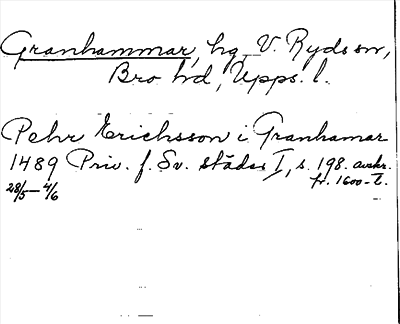 Granhammar, hg, V. Ryds sn,
Bro hd, Upps. l.
Pehr Erichsson i Granhamar
1489 Priv. f. Sv. städer I, s. 198. avskr.
28/5–4/6 fr. 1600-t.